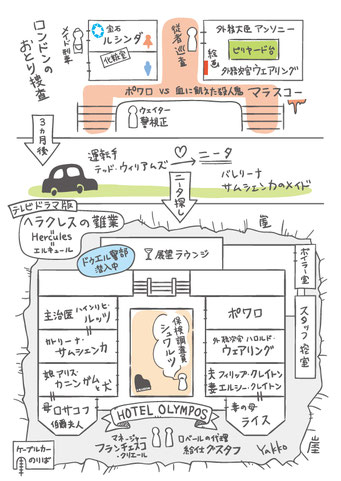 ロンドンの
おとり捜査
メイド刑事
宝石
ルシンダ
化粧室
従者巡査
絵画
外務大臣アンソニー
ビリヤード台
外務次官ウェアリング
ポワロ VS 血に飢えた殺人鬼 マラスコー
ウェイター
警視正
3ヵ月後
運転手
テッド・ウィリアムズ
ニータ
バレリーナ
サムシェンカのメイド
ニータ探し
テレビドラマ版
ヘラクレスの難業
Hercules
エルキュール
ドゥエル警部
潜入中
展望ラウンジ
崖
ボイラー室
スタッフ控室
主治医ハインリヒ・
ルッツ
カトリーナ・
サムシェンカ
娘アリス・
カニンガムと犬
母ロサコフ
伯爵夫人
保険調査員
シュワルツ
ポワロ
外務次官ハロルド・
ウェアリング
夫フィリップ・クレイトン
妻エルシー・クレイトン
妻の母
ライス
HOTEL OLYMPOS
マネージャー
フランチェスコ
・クリエール
ロベールの代理
給仕グスタフ
ケーブルカー
のりば
Yakko
崖